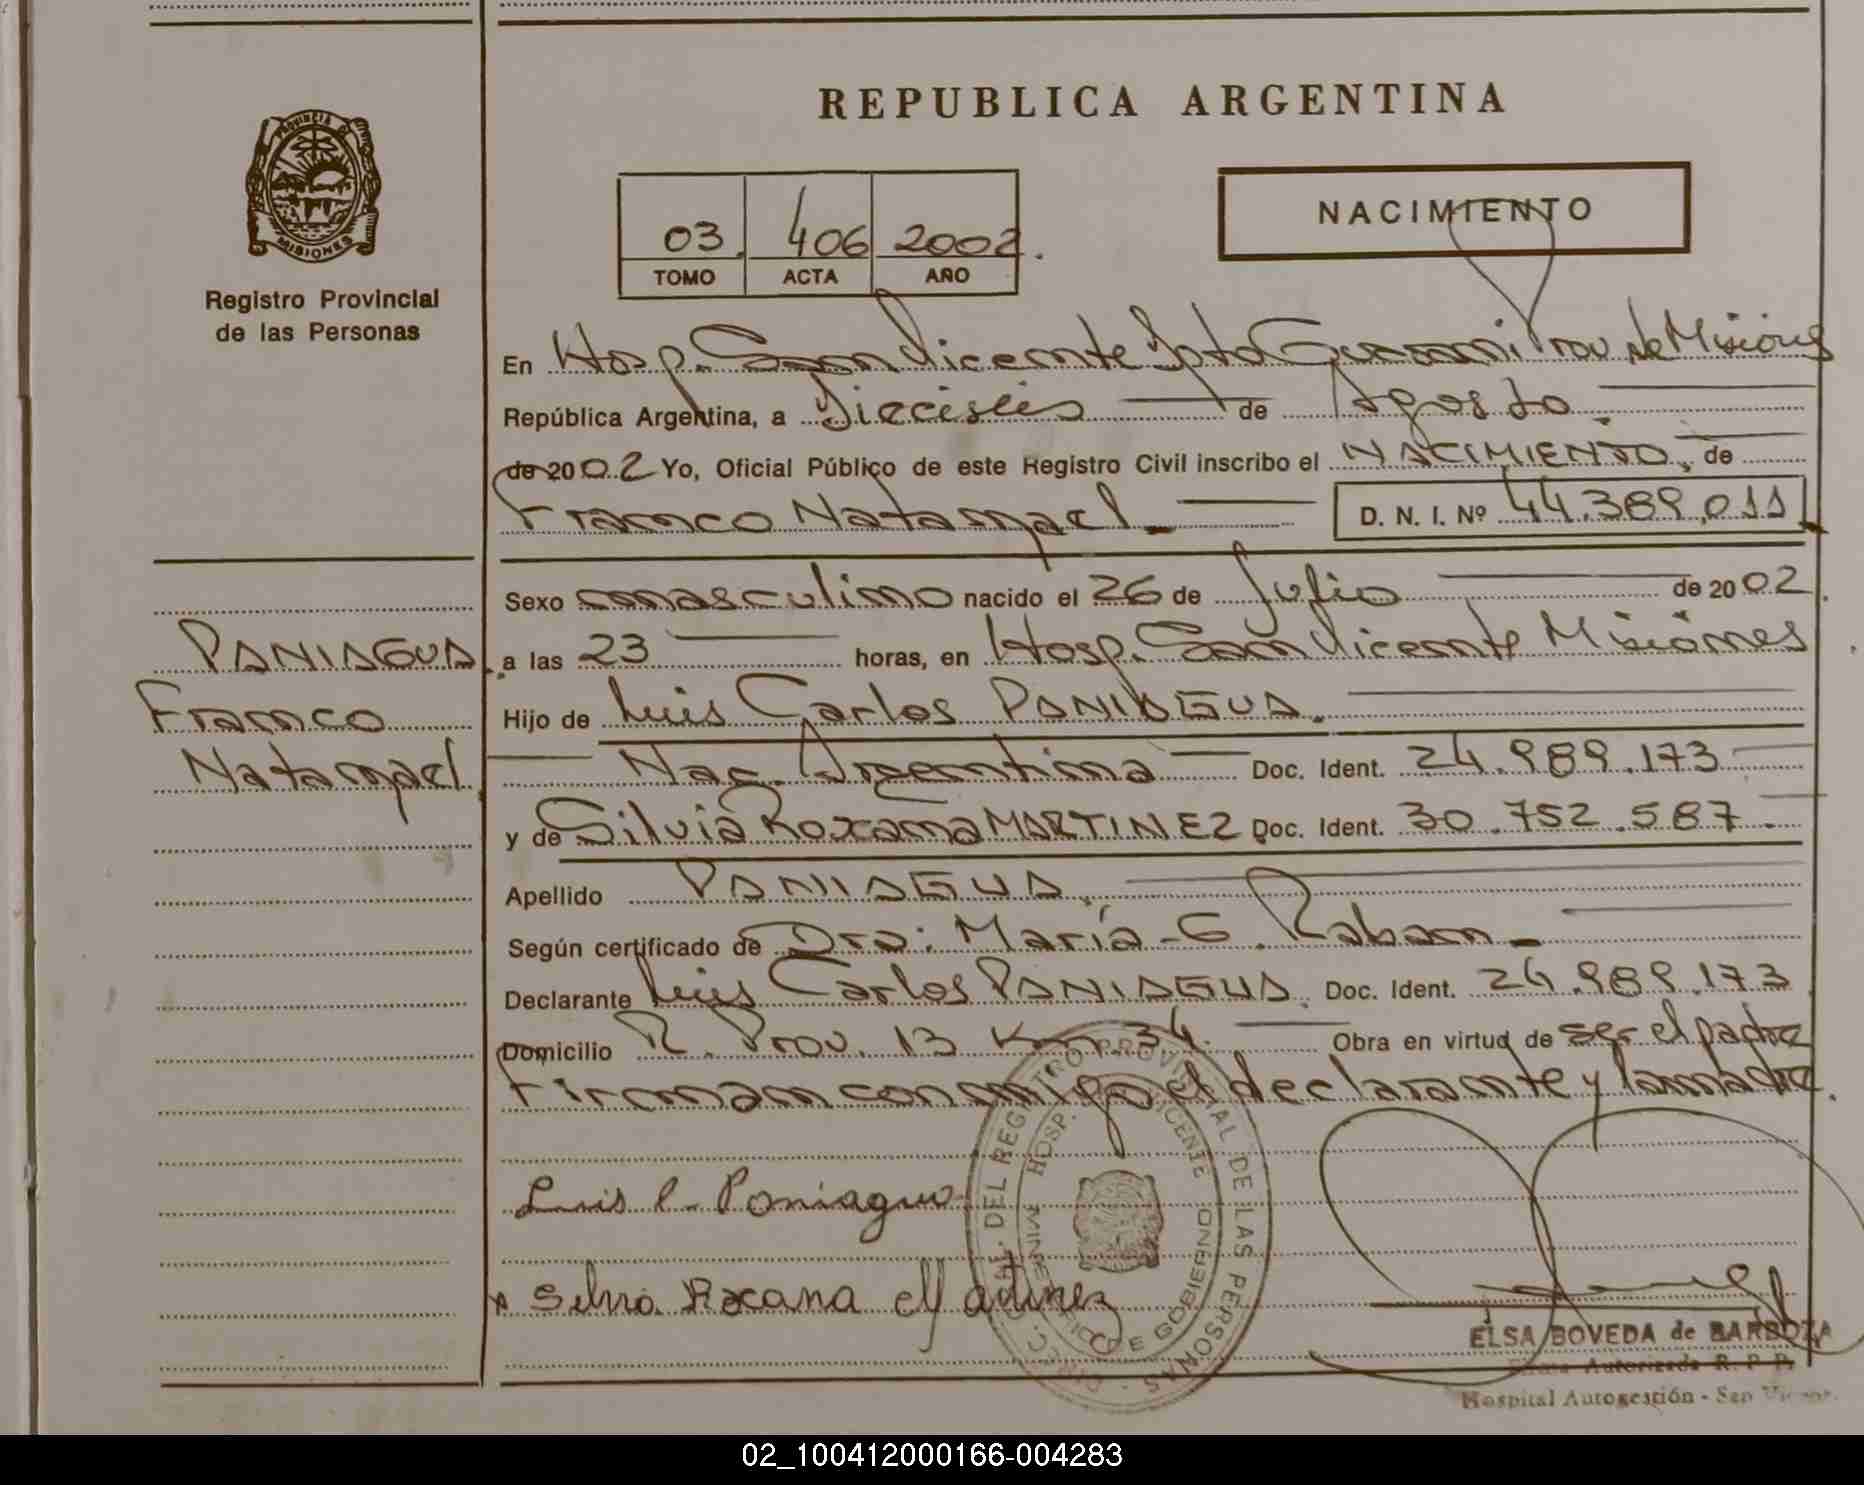 REPUBLICA ARGENTINA
PROVINCIA DE
MISIONES
Registro Provincial
de las Personas
03. 406 2002.
TOMO ACTA AÑO
NACIMIENTO
En Hosp. San Vicente Dpto Guarani Prov de Misiones
República Argentina, a Dieciseis de Agosto.
de 2002 Yo, Oficial Público de este Registro Civil inscribo el NACIMIENTO, de
Franco Natanael D. N. I. Nº 44.389.011
Sexo masculino nacido el 26 de Julio de 2002.
PANIAGUA
Franco
Natanael
a las 23 horas, en Hosp. San Vicente Misiones
Hijo de Luis Carlos PANIAGUA.
Nac. Argentina Doc. Ident. 24.989.173
y de Silvia Roxana MARTINEZ Doc. Ident. 30.752.587.
Apellido PANIAGUA.
Según certificado de Dra: María G. Raban
Declarante Luis Carlos PANIAGUA. Doc. Ident. 24.989.173
Domicilio R. Prov. 13 Km. 34. Obra en virtud de ser el padre
Firman conmigo el declarante y la madre.
Luis C. Paniagua
Silvia Roxana Martinez
DEL REGISTRO PROVINCIAL DE LAS PERSONAS
HOSP. VICENTE
MINISTERIO DE GOBIERNO
ELSA BOVEDA de BARBOZA
Firma Autorizada R. P. P.
Hospital Autogestión - San Vicente
02_100412000166-004283